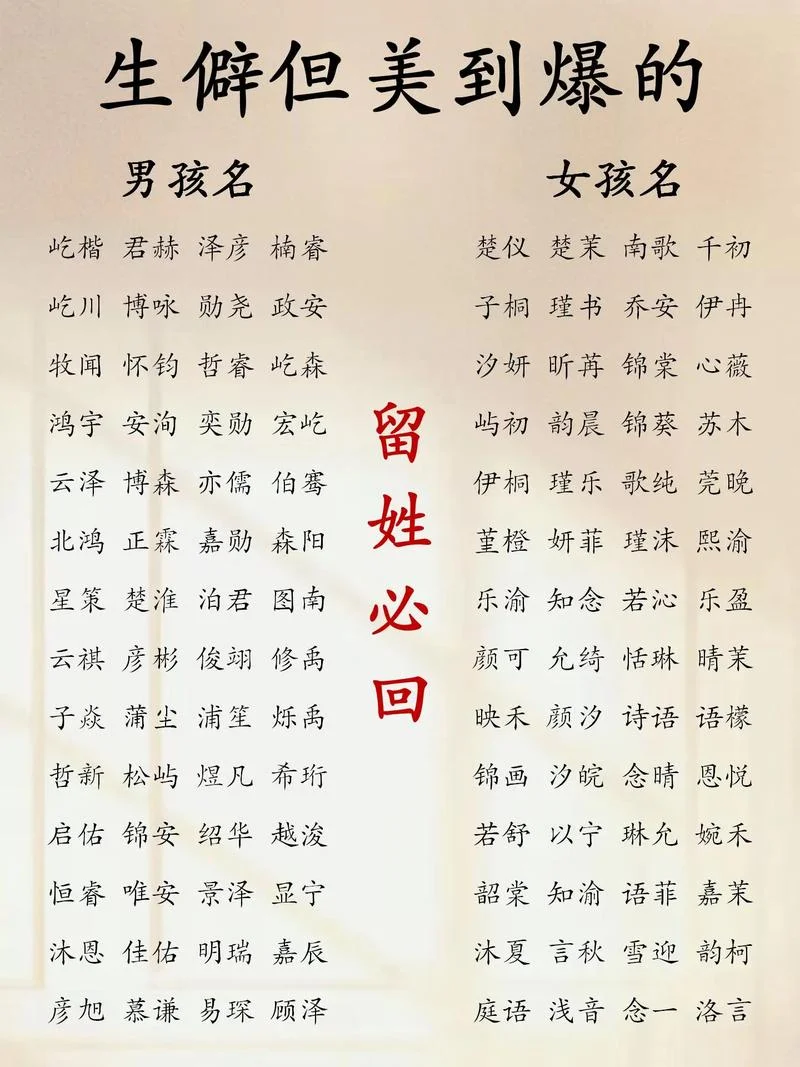 生僻但美到爆的
男孩名
屹楷 君赫 泽彦 楠睿
屹川 博咏 勋尧 政安
牧闻 怀钧 哲睿 屹森
鸿宇 安洵 奕勋 宏屹
云泽 博森 亦儒 伯骞
北鸿 正霖 嘉勋 森阳
星策 楚淮 泊君 图南
云祺 彦彬 俊翊 修禹
子焱 蒲尘 浦笙 烁禹
哲新 松屿 煜凡 希珩
启佑 锦安 绍华 越浚
恒睿 唯安 景泽 显宁
沐恩 佳佑 明瑞 嘉辰
彦旭 慕谦 易琛 顾泽
留姓必回
女孩名
楚仪 楚茉 南歌 千初
子桐 瑾书 乔安 伊冉
汐妍 昕苒 锦棠 心薇
屿初 韵晨 锦葵 苏木
伊桐 瑾乐 歌纯 莞晚
堇橙 妍菲 瑾沫 熙渝
乐渝 知念 若沁 乐盈
颜可 允绮 恬琳 晴茉
映禾 颜汐 诗语 语檬
锦画 汐皖 念晴 恩悦
若舒 以宁 琳允 婉禾
韶棠 知渝 语菲 嘉茉
沐夏 言秋 雪迎 韵柯
庭语 浅音 念一 洛言